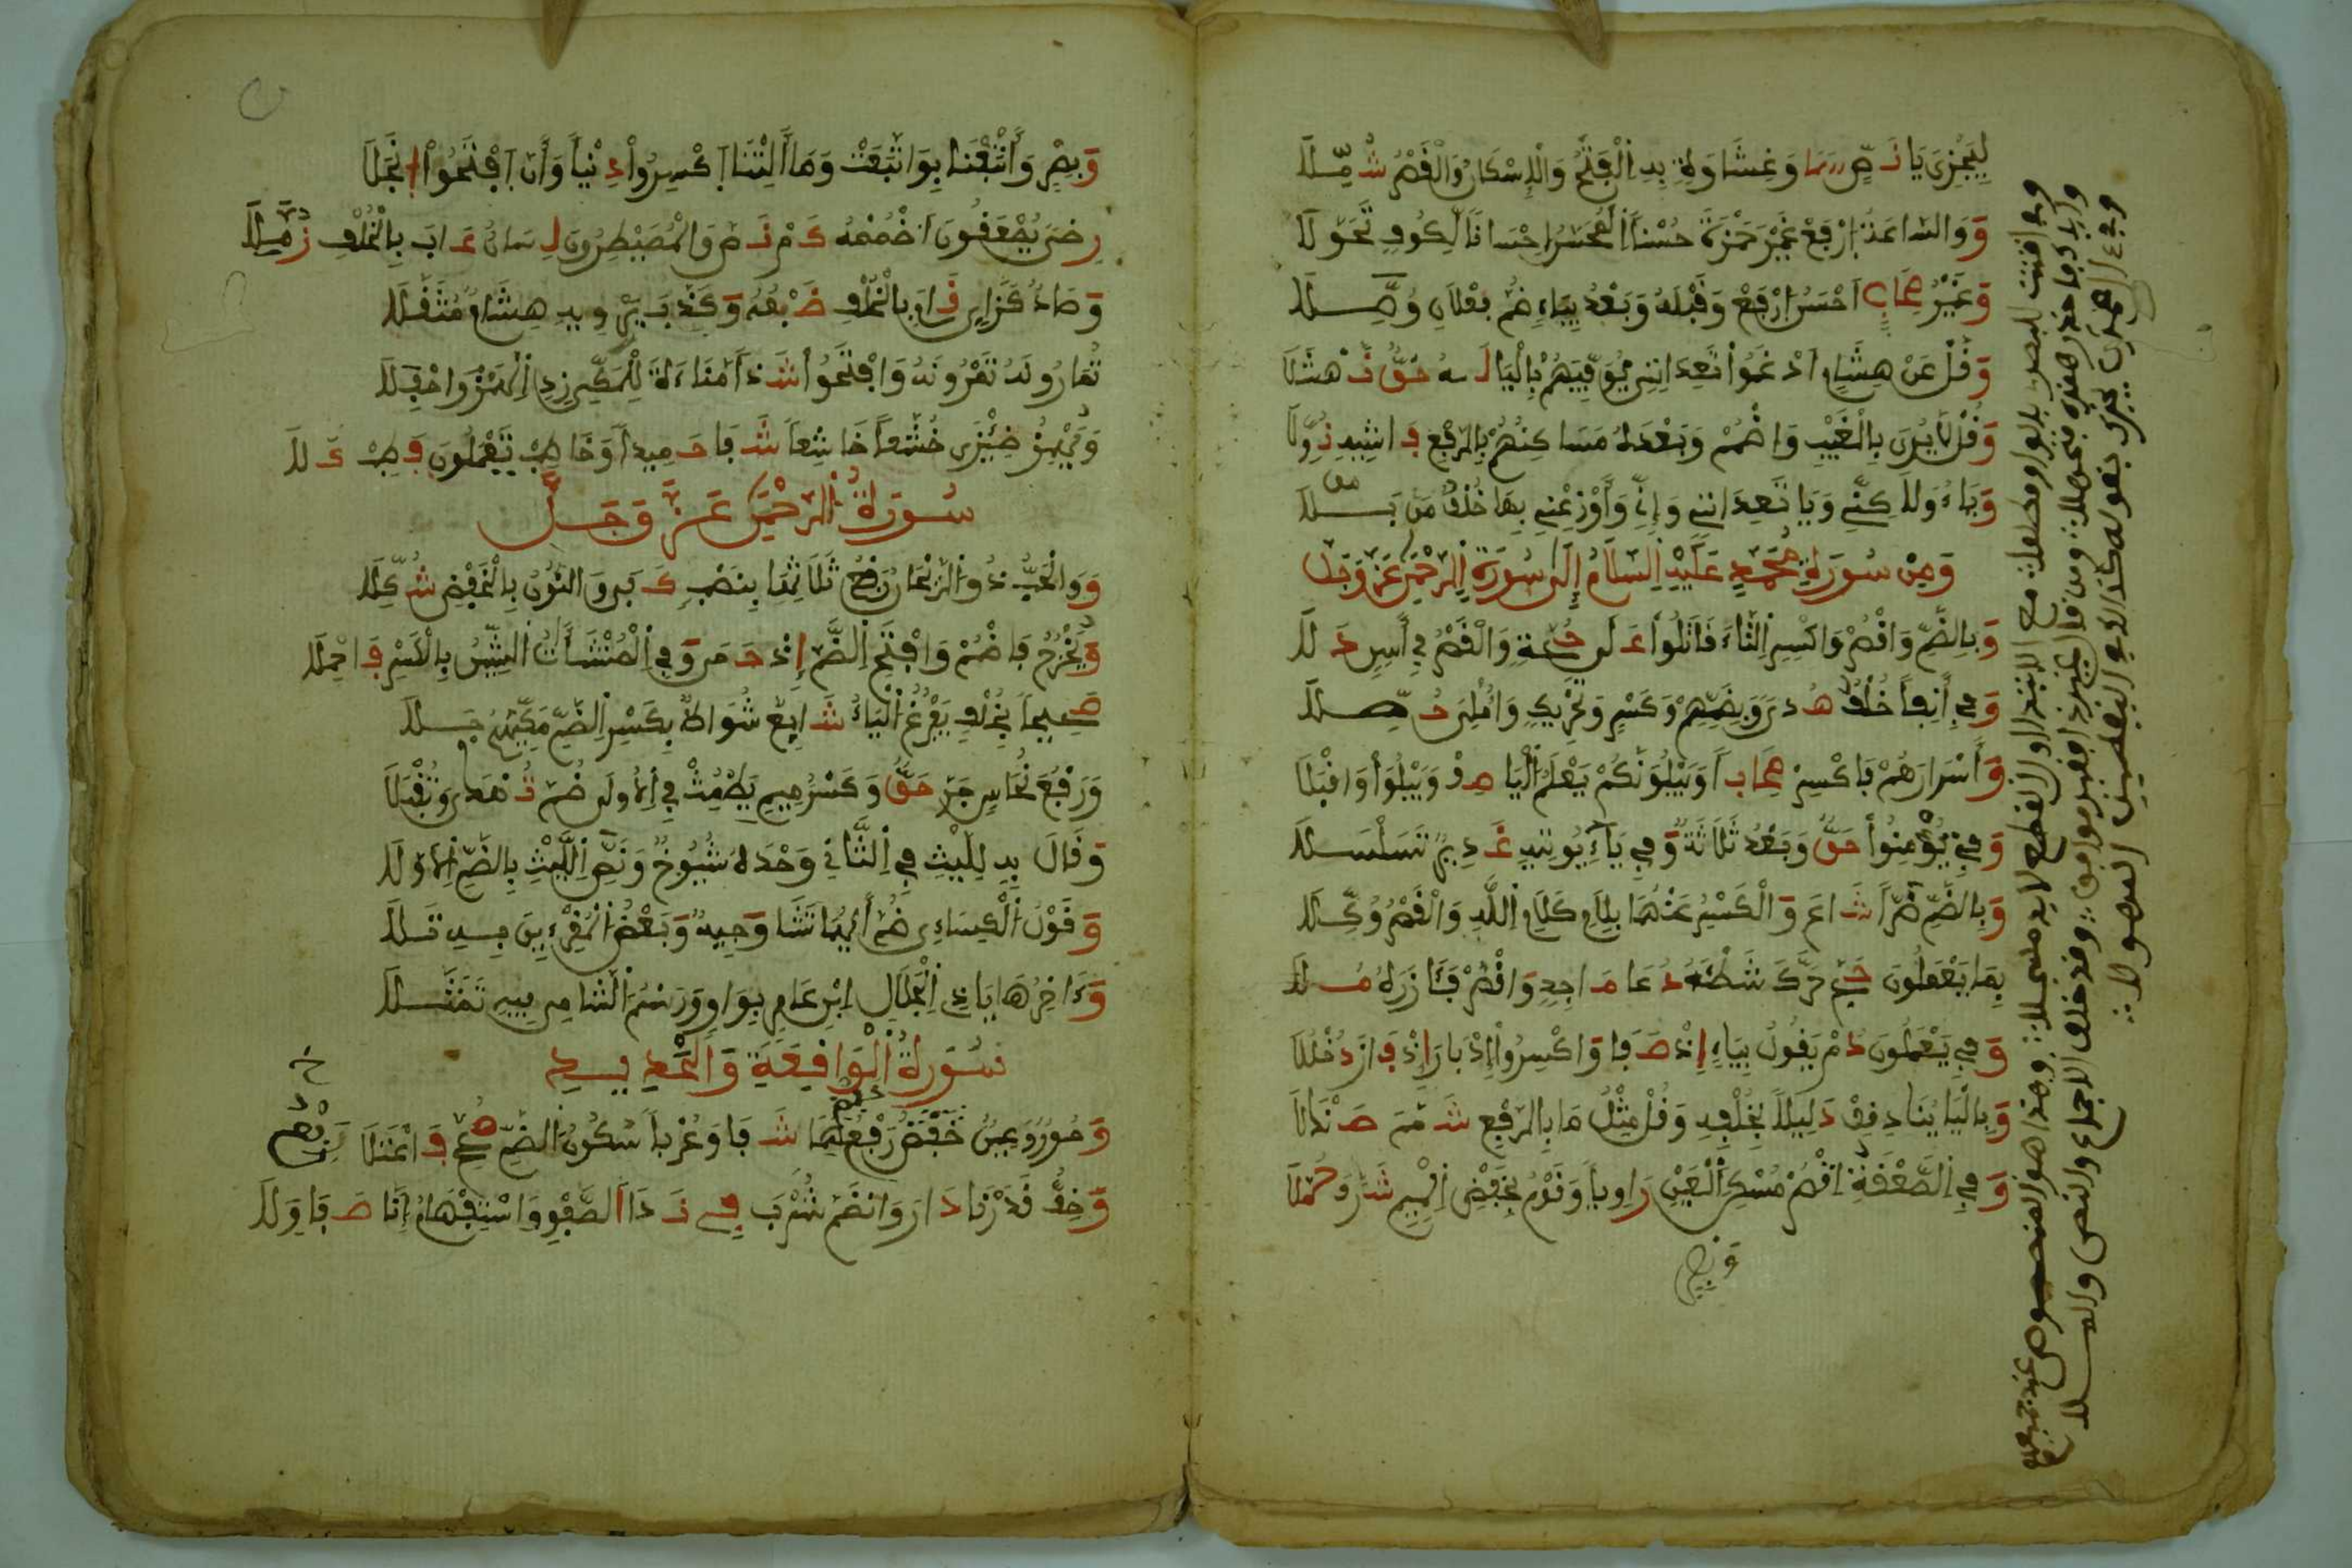 لِيَجْزِيَ يَا نَصٍّ سَمَا وَغِشَاوَةً بِهِ الْفَتْحُ وَالْإِسْكَانُ وَالْقَصْرُ شُمِّلَا
وَوَالسَّاعَةَ ارْفَعْ غَيْرَ حَمْزَةَ حُسْنًا الْمُحَسِّنُ إِحْسَانًا لِكُوفٍ تَحَوَّلَا
وَغَيْرُ صِحَابٍ أَحْسَنَ ارْفَعْ وَقَبْلَهُ وَبَعْدُ بِيَاءٍ ضُمَّ فِعْلَانِ وُصِّلَا
وَقُلْ عَنْ هِشَامٍ أَدْغَمُوا تَعِدَانِنِي يُوَفِّيَهُمْ بِالْيَا لَهُ حَقُّ نَهْشَلَا
وَقُلْ لَا يُرَى بِالْغَيْبِ وَاضْمُمْ وَبَعْدَهُ مَسَاكِنُهُمْ بِالرَّفْعِ فَاشِيهِ نُوِّلَا
وَيَاءُ وَلَكِنِّي وَيَا تَعِدَانِنِي وَإِنِّي وَأَوْزِعْنِي بِهَا خُلْفُ مَنْ بَلَا
وَمِنْ سُورَةِ مُحَمَّدٍ عَلَيْهِ السَّلَامُ إِلَى سُورَةِ الرَّحْمَنِ عَزَّ وَجَلَّ
وَبِالضَّمِّ وَاقْصُرْ وَاكْسِرِ التَّاءَ قَاتَلُوا عَلَى حُجَّةٍ وَالْقَصْرُ فِي آسِنٍ دَلَا
وَفِي آنِفًا خُلْفٌ هُدًى وَبِضَمِّهِمْ وَكَسْرٍ وَتَحْرِيكٍ وَأُمْلِيَ حُصِّلَا
وَأَسْرَارَهُمْ فَاكْسِرْ صِحَابًا وَيَبْلُوَنَّكُمْ يَعْلَمَ الْيَا صِفْ وَيَبْلُوَا وَاقْبَلَا
وَفِي يُؤْمِنُوا حَقٌّ وَبَعْدُ ثَلَاثَةٌ وَفِي يَاءِ يُوتِيهِ غَدِيرٌ تَسَلْسَلَا
وَبِالضَّمِّ ضُرًّا شَاعَ وَالْكَسْرُ عَنْهُمَا بِلَامِ كَلَامَ اللَّهِ وَالْقَصْرُ وُكِّلَا
بِمَا يَعْمَلُونَ حَجَّ حَرَّكَ شَطْأَهُ دُعَا مَاجِدٍ وَاقْصُرْ فَآزَرَهُ مُلَا
وَفِي يَعْمَلُونَ دُمْ يَقُولُ بِيَاءٍ إِذْ صَفَا وَاكْسِرُوا إِدْبَارَ إِذْ فَازَ دُخْلُلَا
وَبِالْيَا يُنَادِي قِفْ دَلِيلًا بِخُلْفِهِ وَقُلْ مِثْلُ مَا بِالرَّفْعِ شَمَّمَ صَنْدَلَا
وَفِي الصَّعْقَةِ اقْصُرْ مُسْكِنَ الْعَيْنِ رَاوِيًا وَقَوْمٌ بِخَفْضِ الْمِيمِ شَرَّفَ حُمَّلَا
وَبَصْرٍ وَأَتْبَعْنَا بِوَاتَّبَعَتْ وَمَا أَلِتْنَا اكْسِرُوا دِنْيًا وَأَنَّ افْتَحُوا الْجَلَا
رِضًى يُصْعَقُونَ اضْمُمْهُ كَمْ نَصَّ وَالْمُصَيْطِرُونَ لِسَانٌ عَابَ بِالْخُلْفِ زُمَّلَا
وَصَادٌ كَزَايٍ قَامَ بِالْخُلْفِ ضَبْعُهُ وَكَذَّبَ يَرْوِيهِ هِشَامٌ مُثَقَّلَا
تُمَارُونَهُ تَمْرُونَهُ وَافْتَحُوا شَذًا مَنَاءَةَ لِلْمَكِّي زِدِ الْهَمْزَ وَاحْفِلَا
وَيَهْمِزُ ضِيزَى خُشَّعًا خَاشِعًا شَفَا حَمِيدًا وَخَاطِبْ تَعْلَمُونَ فَطِبْ كَلَا
سُورَةُ الرَّحْمَنِ عَزَّ وَجَلَّ
وَوَالْحَبُّ ذُو الرَّيْحَانُ رَفْعُ ثَلَاثِهَا بِنَصْبٍ كَفَى وَالنُّونُ بِالْخَفْضِ شُكِّلَا
وَيَخْرُجُ فَاضْمُمْ وَافْتَحِ الضَّمَّ إِذْ حَمَى وَفِي الْمُنْشَآتُ الشِّينُ بِالْكَسْرِ فَاحْمِلَا
صَحِيحًا بِخُلْفٍ يَفْرُغُ الْيَاءُ شَائِعٌ شُوَاظٌ بِكَسْرِ الضَّمِّ مَكِّيُّهُمْ جَلَا
وَرَفْعَ نُحَاسٌ جَرَّ حَقٌّ وَكَسْرَ مِيمِ يَطْمِثْ فِي الْأُولَى ضُمَّ تُهْدَى وَتُقْبَلَا
وَقَالَ بِهِ لِلَّيْثِ فِي الثَّانِي وَحْدَهُ شُيُوخٌ وَنَصُّ اللَّيْثِ بِالضَّمِّ الْأَوَّلَا
وَقَوْلُ الْكِسَائِي ضُمَّ أَيُّهُمَا تَشَا وَجِيهٌ وَبَعْضُ الْمُقْرِئِينَ بِهِ تَلَا
وَءَاخِرُهَا يَا ذِي الْجَلَالِ ابْنُ عَامِرٍ بِوَاوٍ وَرَسْمُ الشَّامِ فِيهِ تَمَثَّلَا
سُورَةُ الْوَاقِعَةِ وَالْحَدِيدِ
وَحُورٌ وَعِينٌ خَفْضُ رَفْعِهِمَا شَفَا وَعُرْبًا سُكُونُ الضَّمِّ صُحِّحَ فَاعْتَلَا
وَخِفُّ قَدَرْنَا دَارَ وَانْضَمَّ شُرْبَ فِي نَدَا الصَّفْوِ وَاسْتِفْهَامُ إِنَّا صَفَا وَلَا